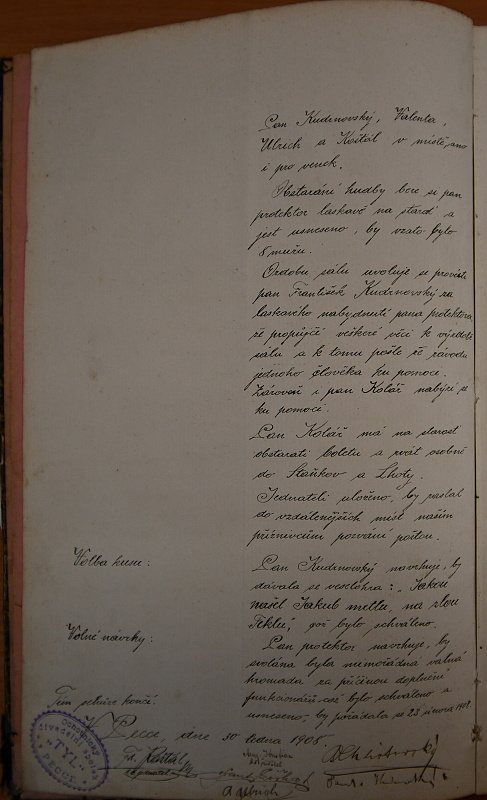 Pan Kudrnovský, Valenta,
Ulrich a Koštál v místě, ano
i pro venek.
Obstarání hudby bere si pan
protektor laskavě na starost a
jest usneseno, by vzato bylo
8 mužů.
Ozdobu sálu uvoluje se provésti
pan František Kudrnovský za
laskavého nabydnutí pana protektora
že propůjčí veškeré věci k výzdobě
sálu a k tomu pošle ze závodu
jednoho člověka ku pomoci.
Zároveň i pan Kolář nabízí se
ku pomoci.
Pan Kolář má na starost
obstarati a zvát osobně
do Staňkov a Lhoty.
Jednateli uloženo, by zaslal
do vzdálenějších míst našim
příznivcům pozvání poštou.
Volba kusu:
Pan Kudrnovský navrhuje, by
dávala se veselohra: „Jakou
našel Jakub metlu, na zlou
Teklu", což bylo schváleno.
Volné návrhy:
Pan protektor navrhuje, by
svolána byla mimořádná valná
hromada za příčinou doplnění
funkcionářů což bylo schváleno a
usneseno, by pořádala se 23 února 1908.
Tím schůze končí.
V Peci, dne 30 ledna 1908
Fr. Koštál
A Ulrich
OCHOTNICKÝ
DIVADELNÍ SPOLEK
„TYL"